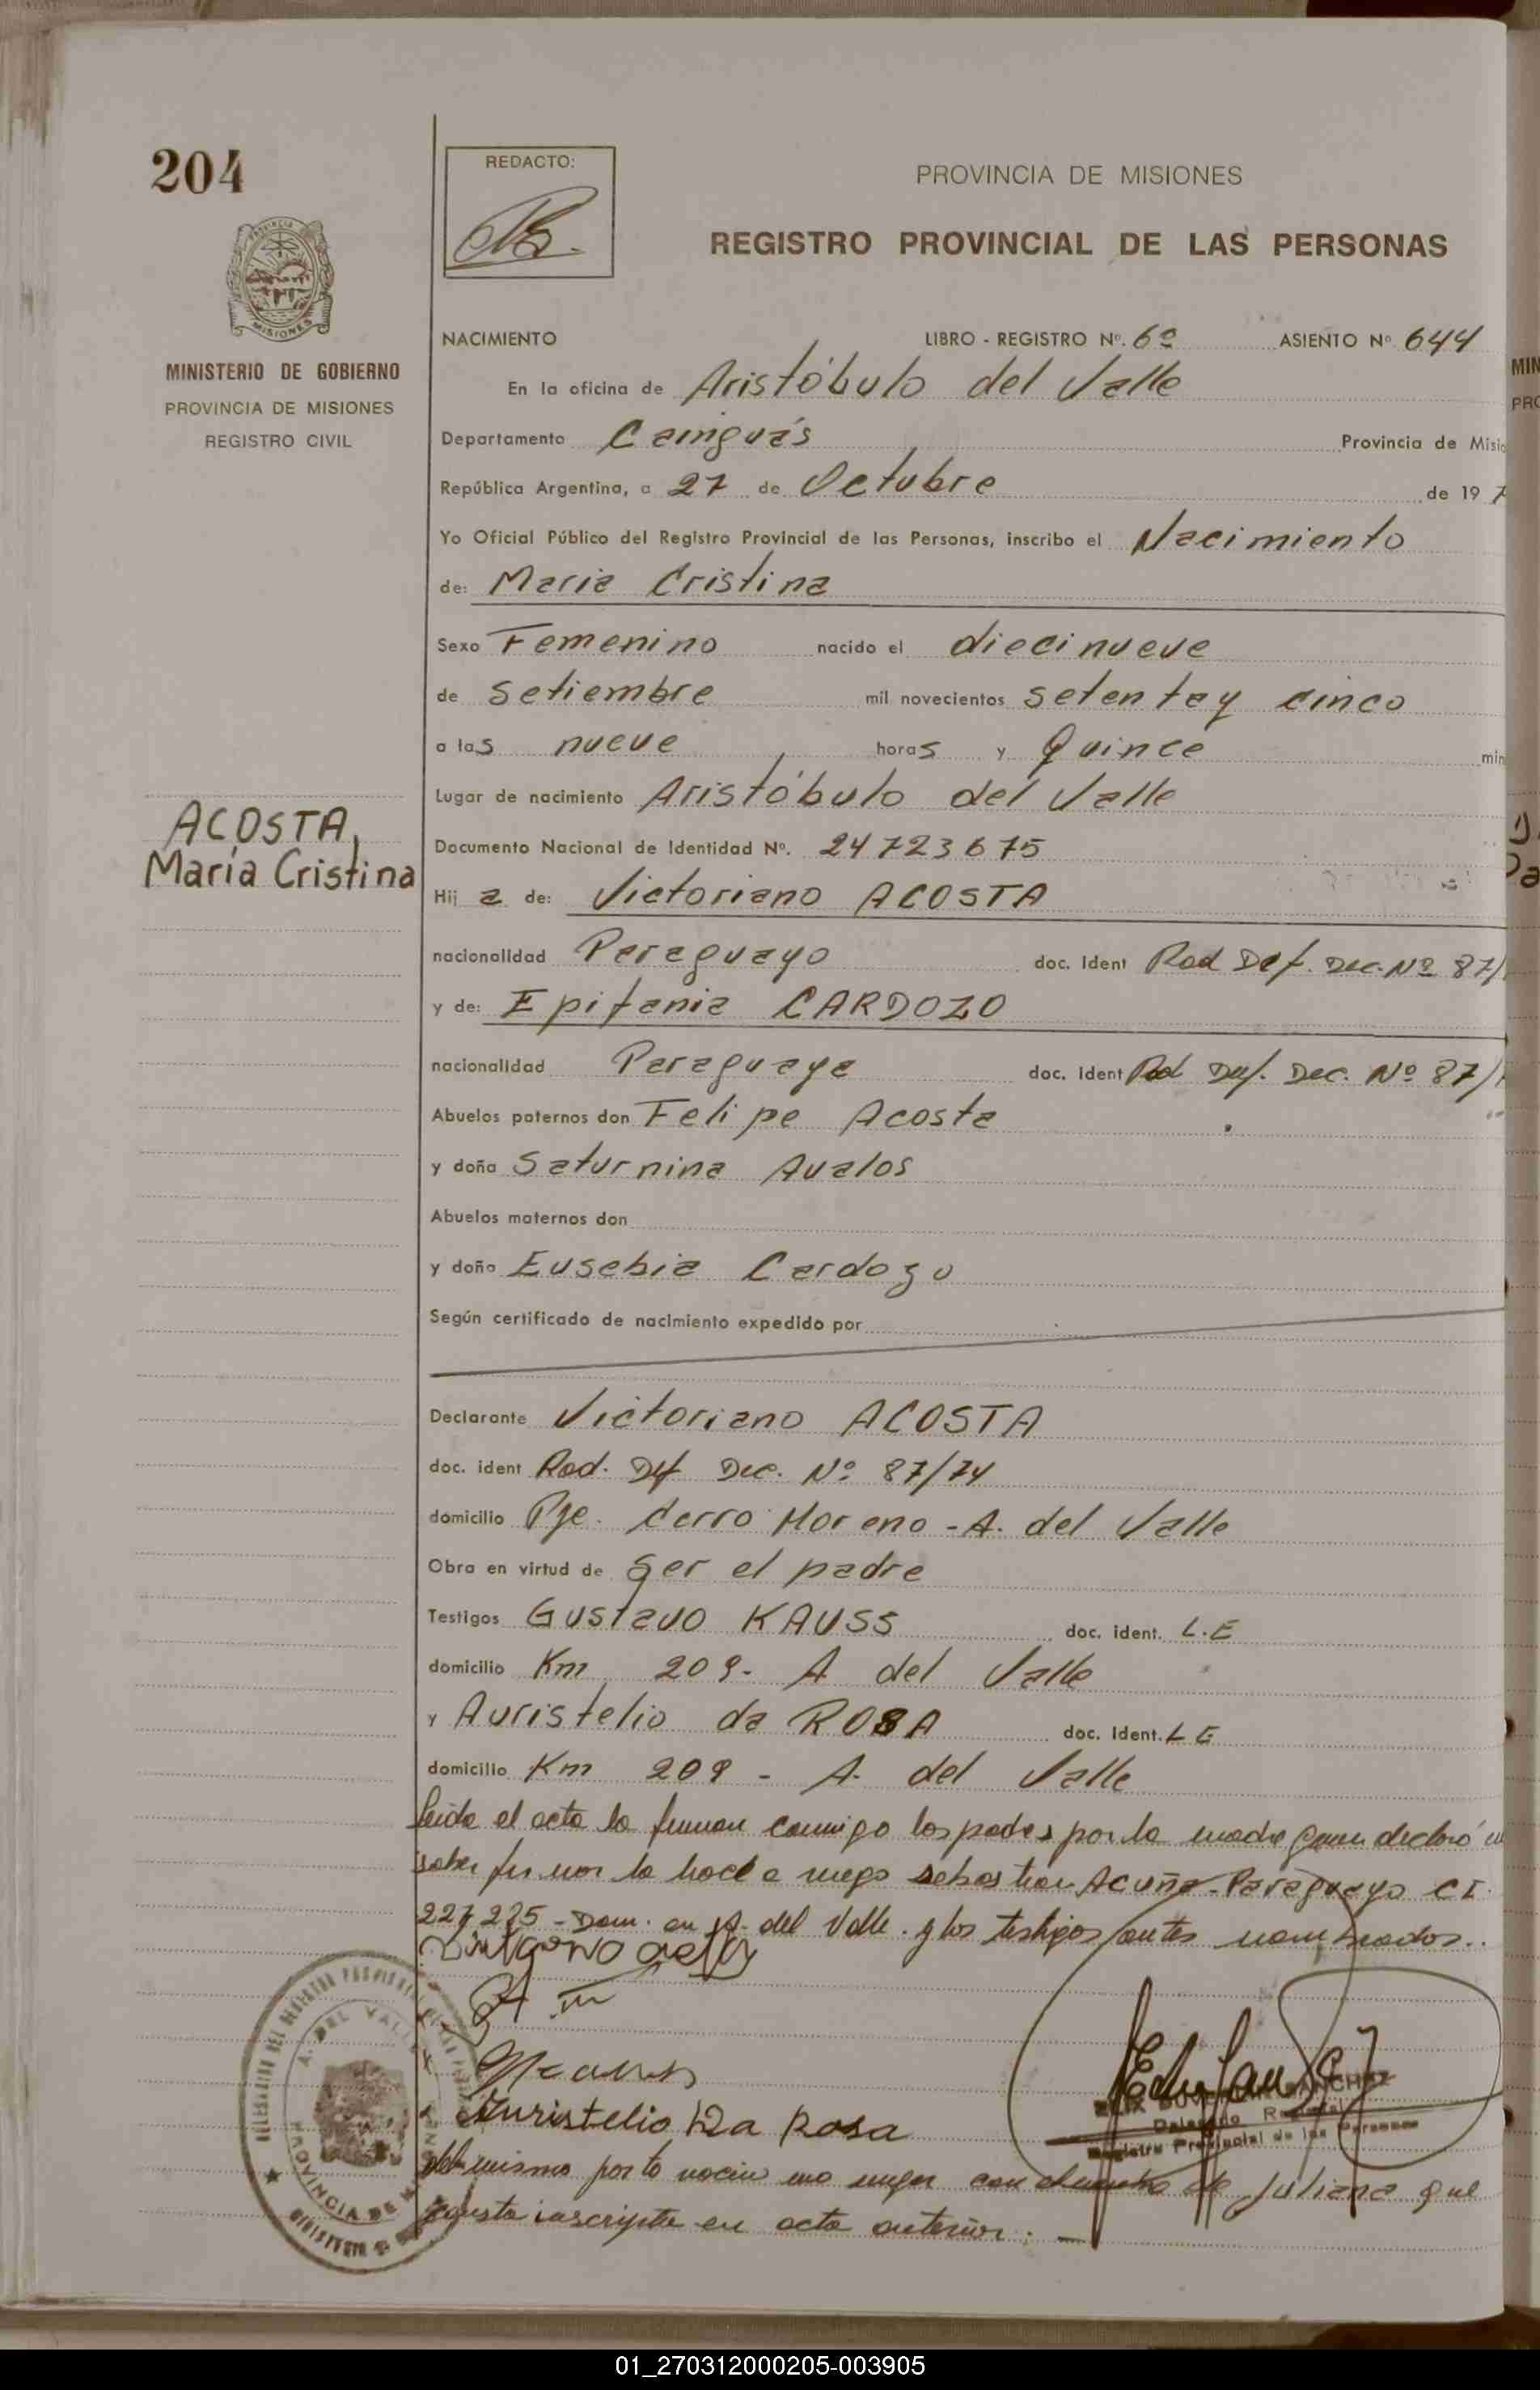 204
REDACTO:
PROVINCIA DE MISIONES
REGISTRO PROVINCIAL DE LAS PERSONAS
MISIONES
MINISTERIO DE GOBIERNO
PROVINCIA DE MISIONES
REGISTRO CIVIL
NACIMIENTO LIBRO - REGISTRO Nº. 6º ASIENTO Nº 644
En la oficina de Aristóbulo del Valle
Departamento Cainguás Provincia de Misio
República Argentina, a 27 de Octubre de 19 7
Yo Oficial Público del Registro Provincial de las Personas, inscribo el Nacimiento
de: Maria Cristina
Sexo Femenino nacido el diecinueve
de setiembre mil novecientos setenta y cinco
a las nueve horas y Quince min
Lugar de nacimiento Aristóbulo del Valle
Documento Nacional de Identidad Nº. 24723675
ACOSTA,
María Cristina
Hij a de: Victoriano ACOSTA
nacionalidad Paraguayo doc. Ident Rad Def. Dec. Nº 87/
y de: Epifania CARDOZO
nacionalidad Paraguaya doc. Ident Rad Def. Dec. Nº 87/
Abuelos paternos don Felipe Acosta
y doña Saturnina Avalos
Abuelos maternos don
y doña Eusebia Cardozo
Según certificado de nacimiento expedido por
Declarante Victoriano ACOSTA
doc. ident Rad. Def Dec. Nº 87/74
domicilio Pje. Cerro Moreno - A. del Valle
Obra en virtud de ser el padre
Testigos Gustavo KAUSS doc. ident. L.E
domicilio Km 209- A del Valle
y Auristelio da ROSA doc. Ident. L E
domicilio Km 209 - A. del Valle
Leida el acta la firman conmigo los padres por la madre quien declaró
saber firmar lo hace a ruego Sebastian Acuña - Paraguayo CI.
227225 - Dom. en A. del Valle. y los testigos antes nombrados..
Auristelio Da Rosa
del mismo parto nacio una mujer con el nombre de Juliana que
inscripta en acta anterior. —
SANCHEZ
Delegado Regional
Registro Provincial de las Personas
A. DEL VALLE
PROVINCIA DE
01_270312000205-003905